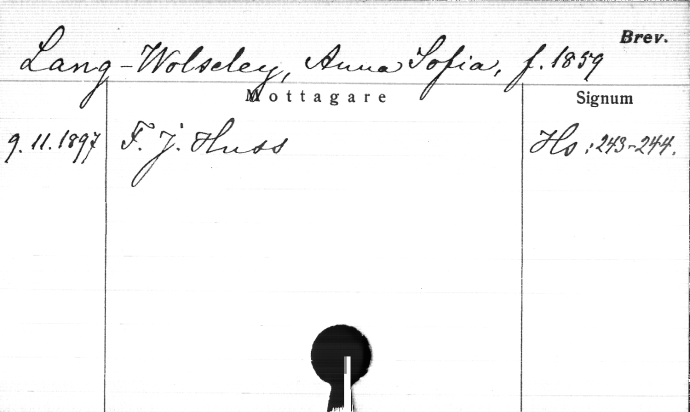 Brev.
Lang-Wolseley, Anna Sofia, f. 1859
Mottagare Signum
9.11.1897 F. J. Huss Hs: 243-244.